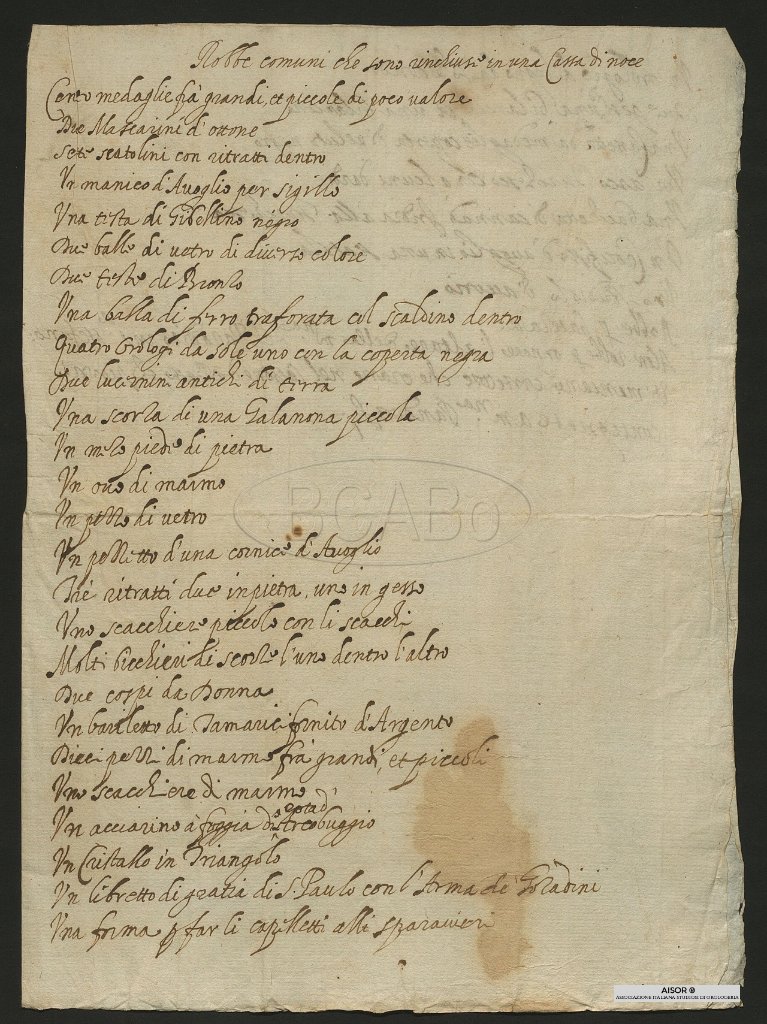 Robbe comuni che sono rinchiuse in una Cassa di noce
Cento medaglie frà grandi, et piccole di poco valore
Due Mascarini d'ottone
Sette scatolini con ritratti dentro
Un manico d'Avoglio per sigillo
Una testa di Gibellino negro
Due balle di vetro di diverso colore
Due teste di Bronzo
Una balla di ferro traforata col scaldino dentro
Quatro Orologi da sole uno con la coperta negra
Due lucernini antichi di terra
Una scorza di una Galanona piccola
Un mezo piede di pietra
Un ovo di marmo
Un pezzo di vetro
Un pezzetto d'una cornice d'Avoglio
Tré ritratti due in pietra, uno in gesso
Uno scacchiere piccolo con li scacchi
Molti bicchieri di scorze l'uno dentro l'altro
Due cospi da Donna
Un bariletto di Tamarici finito d'Argento
Dieci pezzi di marmo frà grandi, et piccoli
Uno scacchiere di marmo
Un acciarino à foggia d'Arcobuggio
Un Cristallo in Triangolo
Un libretto di gratia di S. Paulo con l'Arma de Gozadini
Una forma p far li capelletti alli sparavieri
BCABo
AISOR ®
ASSOCIAZIONE ITALIANA STUDIOSI DI OROLOGERIA